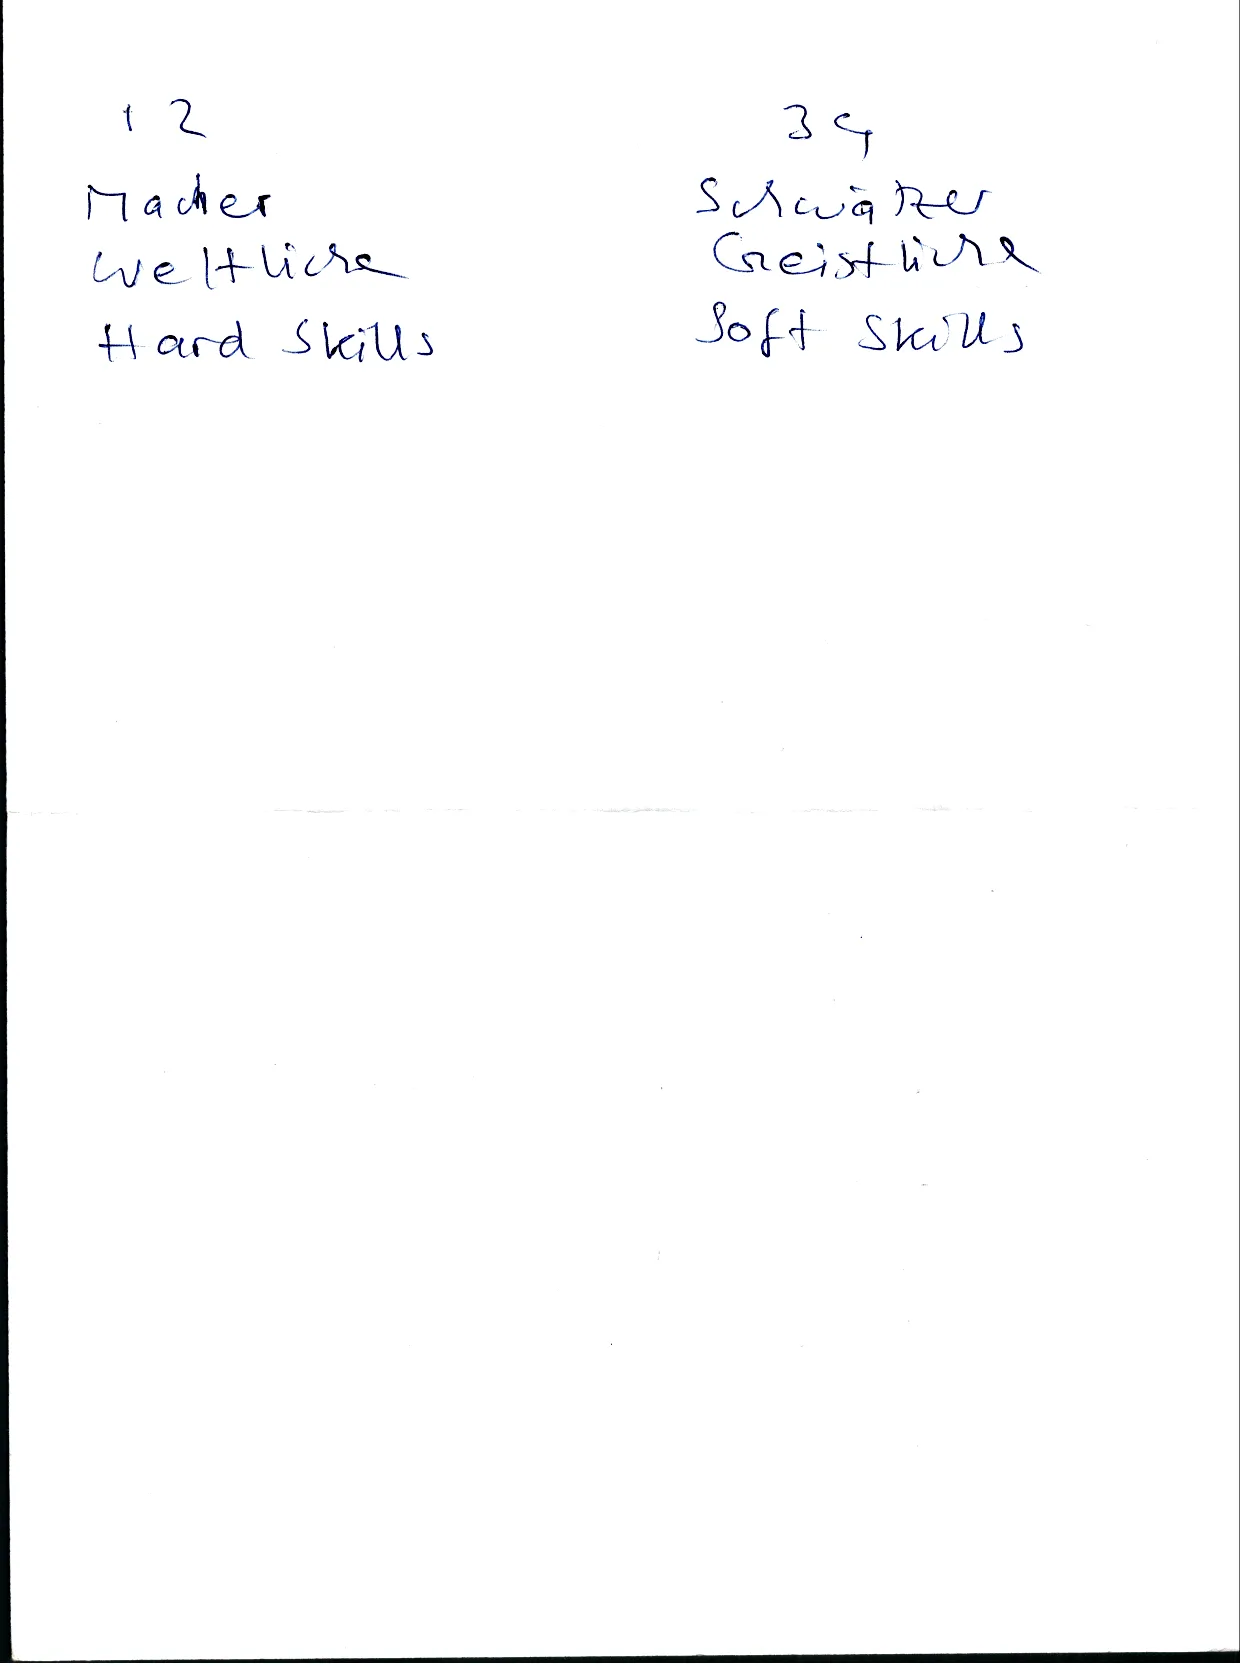 1 2
Macher
Weltliche
Hard Skills
3 4
Schwätzer
Geistliche
Soft Skills